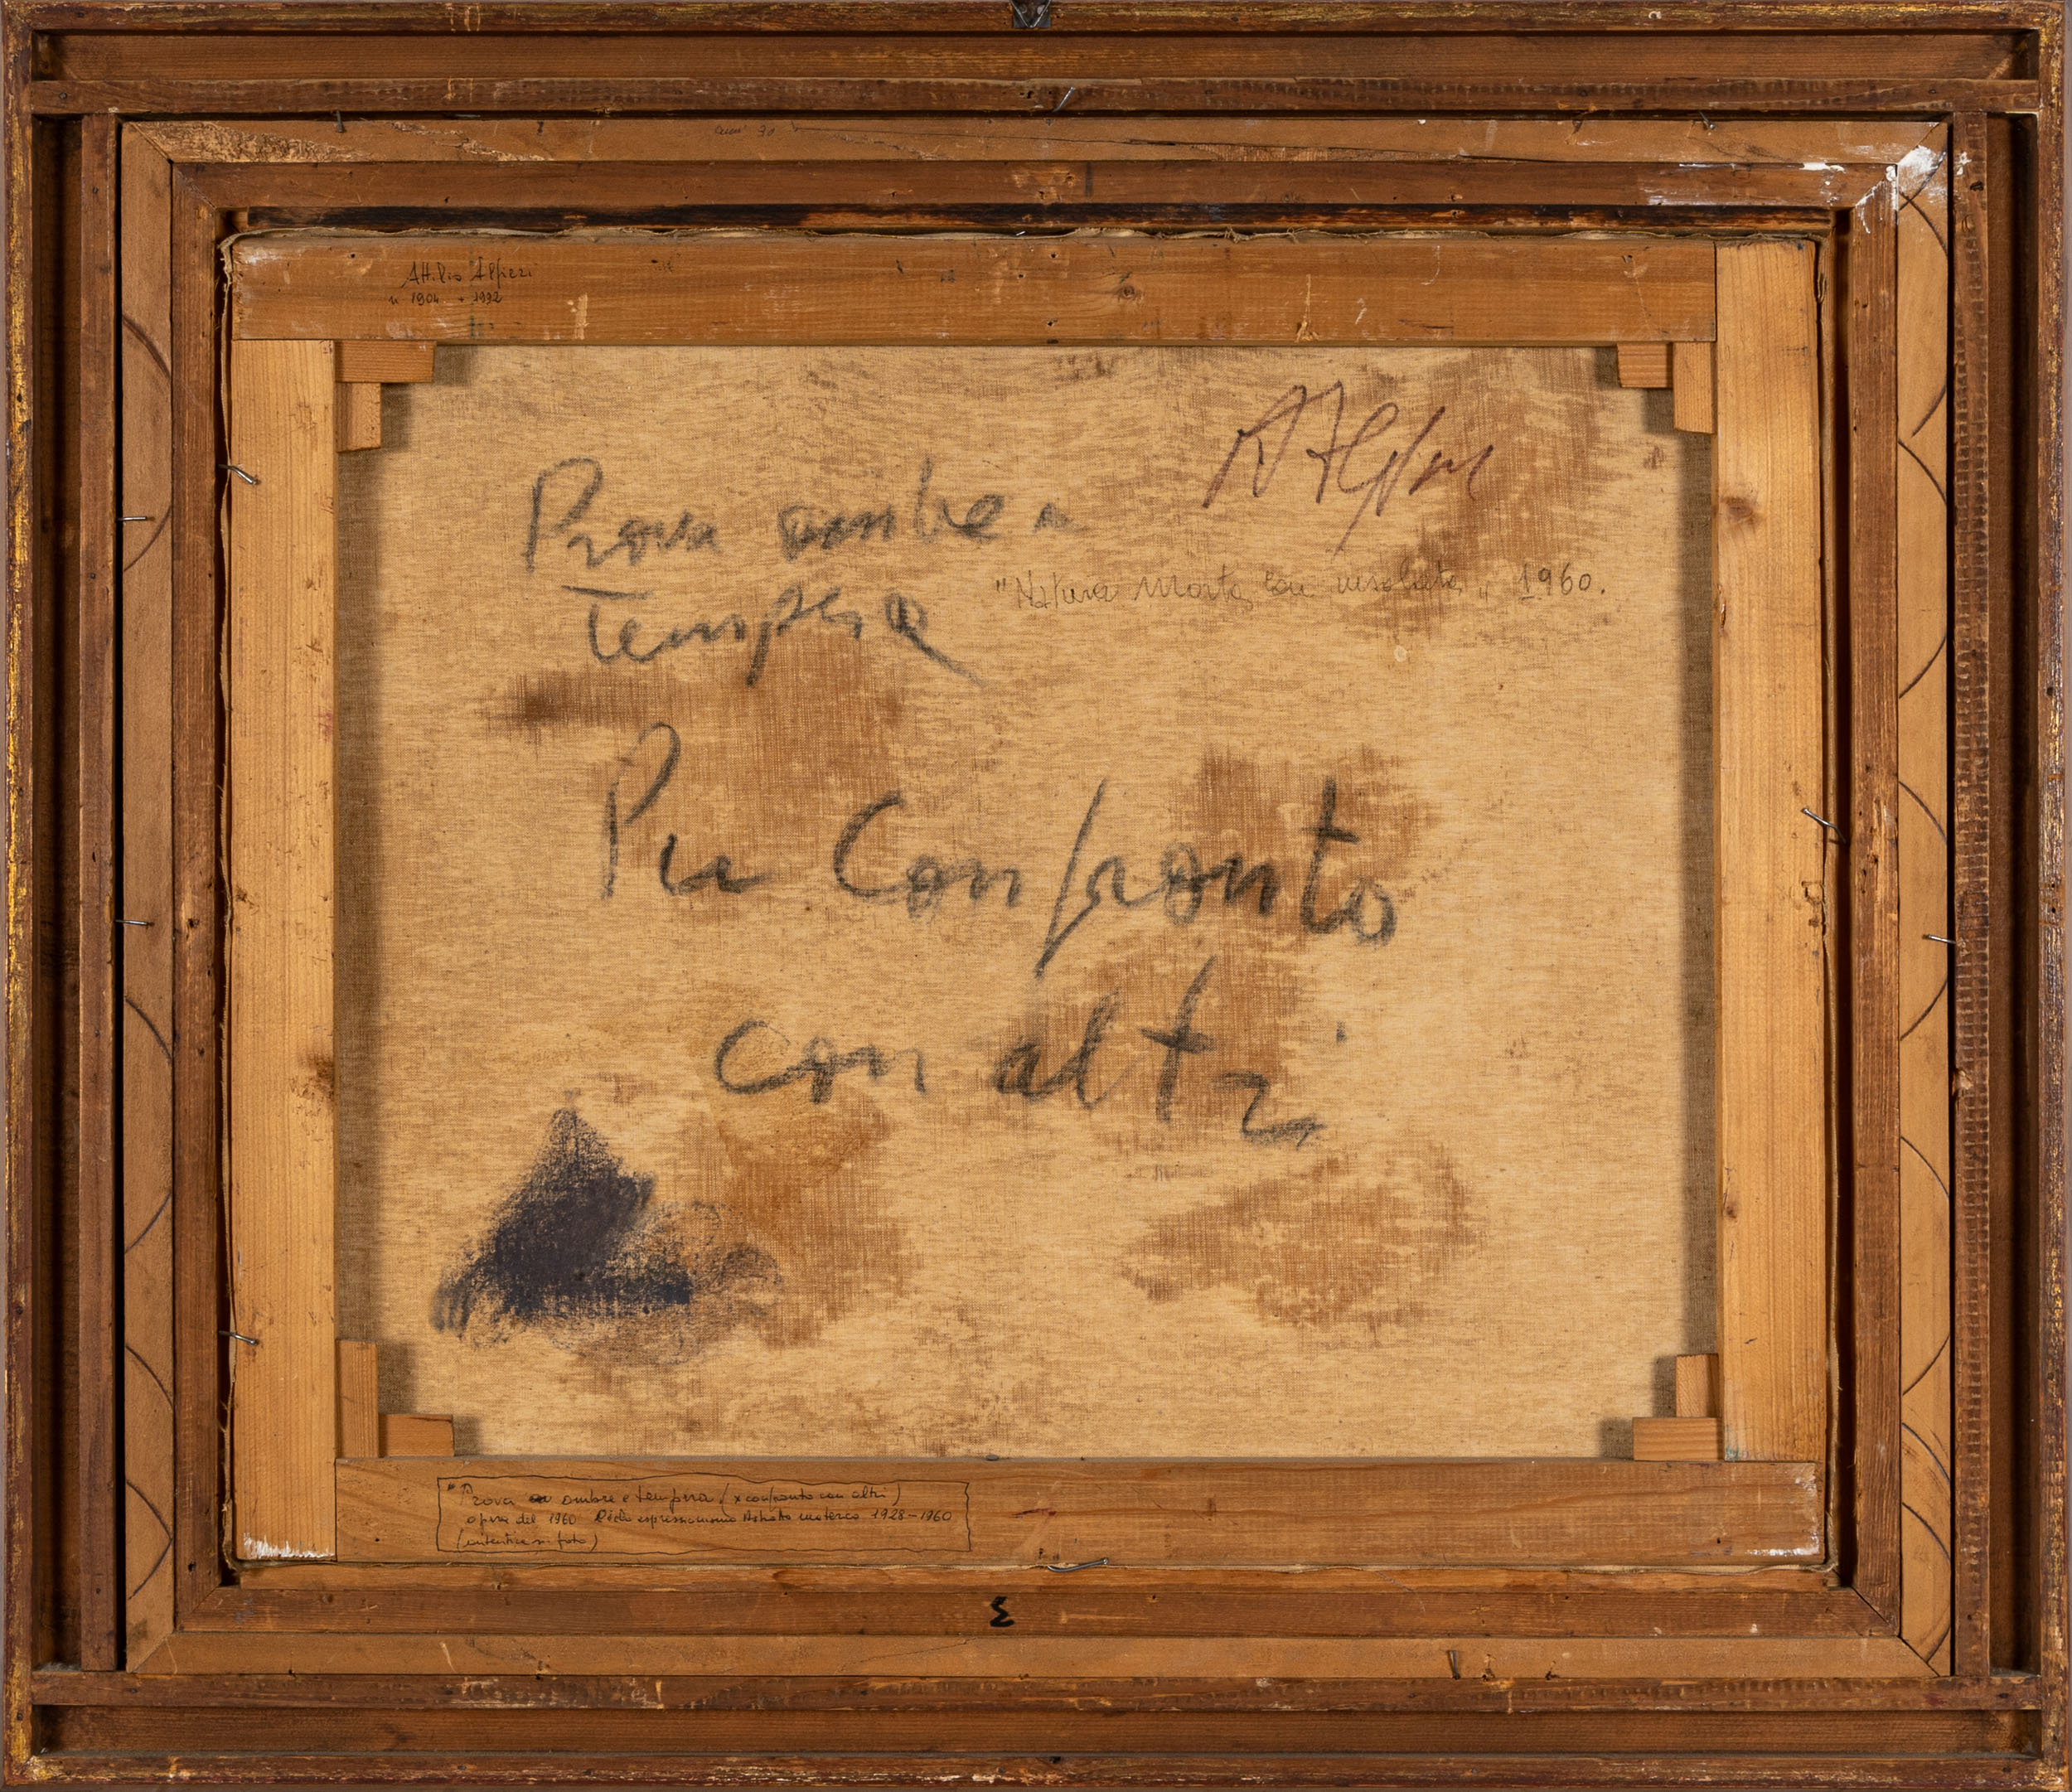 Attilio Alfieri
n 1904 + 1992
A Alfieri
Prova ombre
Tempera
"Natura Morta con 1960.
Per Confronto
con altri
"Prova ombre e tempera (x confronto con altri)
opera del 1960 espressionismo Astratto materico 1928-1960
(autentica su foto)